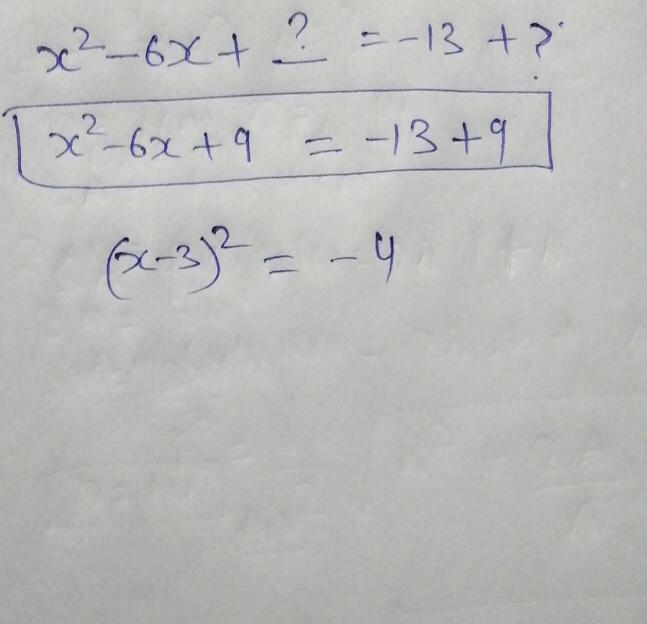 x² - 6x + ? = -13 + ?
x² - 6x + 9 = -13 + 9
(x-3)² = -4